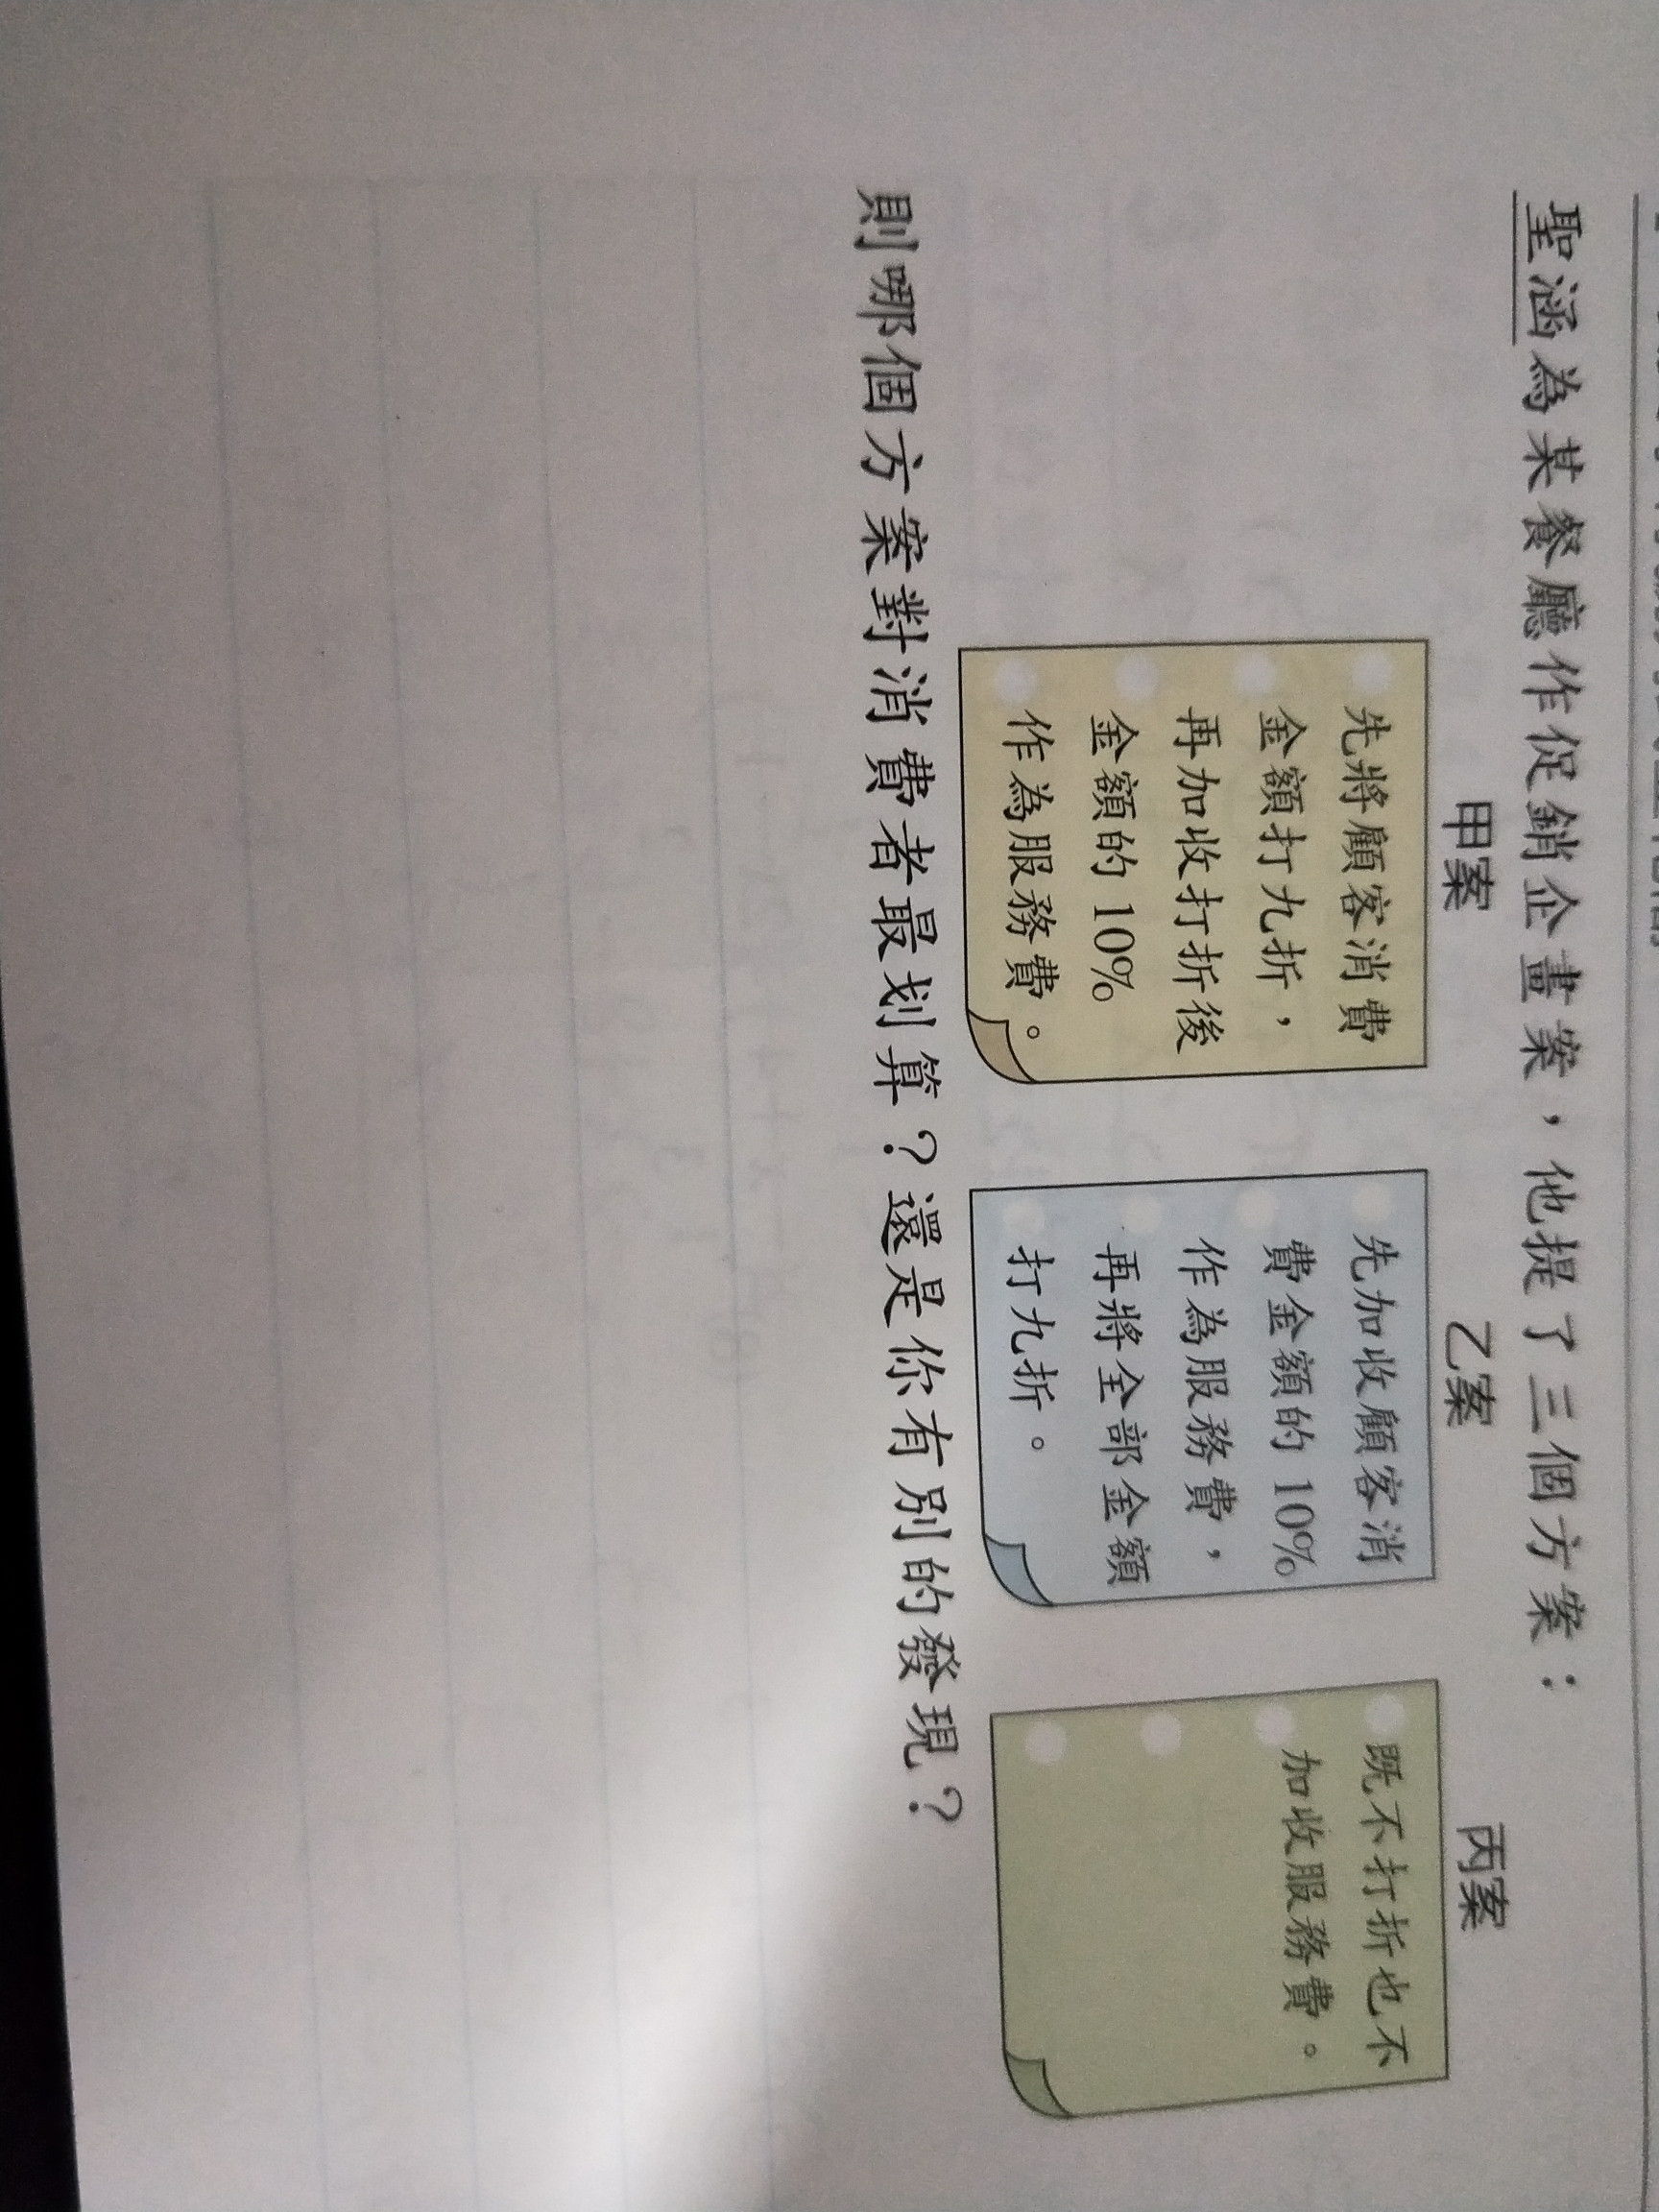 聖涵為某餐廳作促銷企畫案，他提了三個方案：
甲案
先將顧客消費
金額打九折，
再加收打折後
金額的 10%
作為服務費。
乙案
先加收顧客消
費金額的 10%
作為服務費，
再將全部金額
打九折。
丙案
既不打折也不
加收服務費。
則哪個方案對消費者最划算？還是你有別的發現？